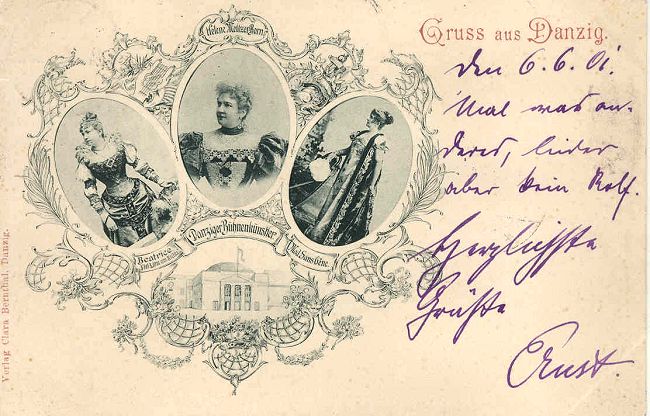 Helene Melzer-Born
Gruss aus Danzig.
den 6.6.01.
Mal was an-
deres, leider
aber kein Rolf.
Herzlichste
Grüße
Ernst.
Danziger Bühnenkünstler
Beatrice
Mad. Sans Gêne
Verlag Clara Bernthal, Danzig.